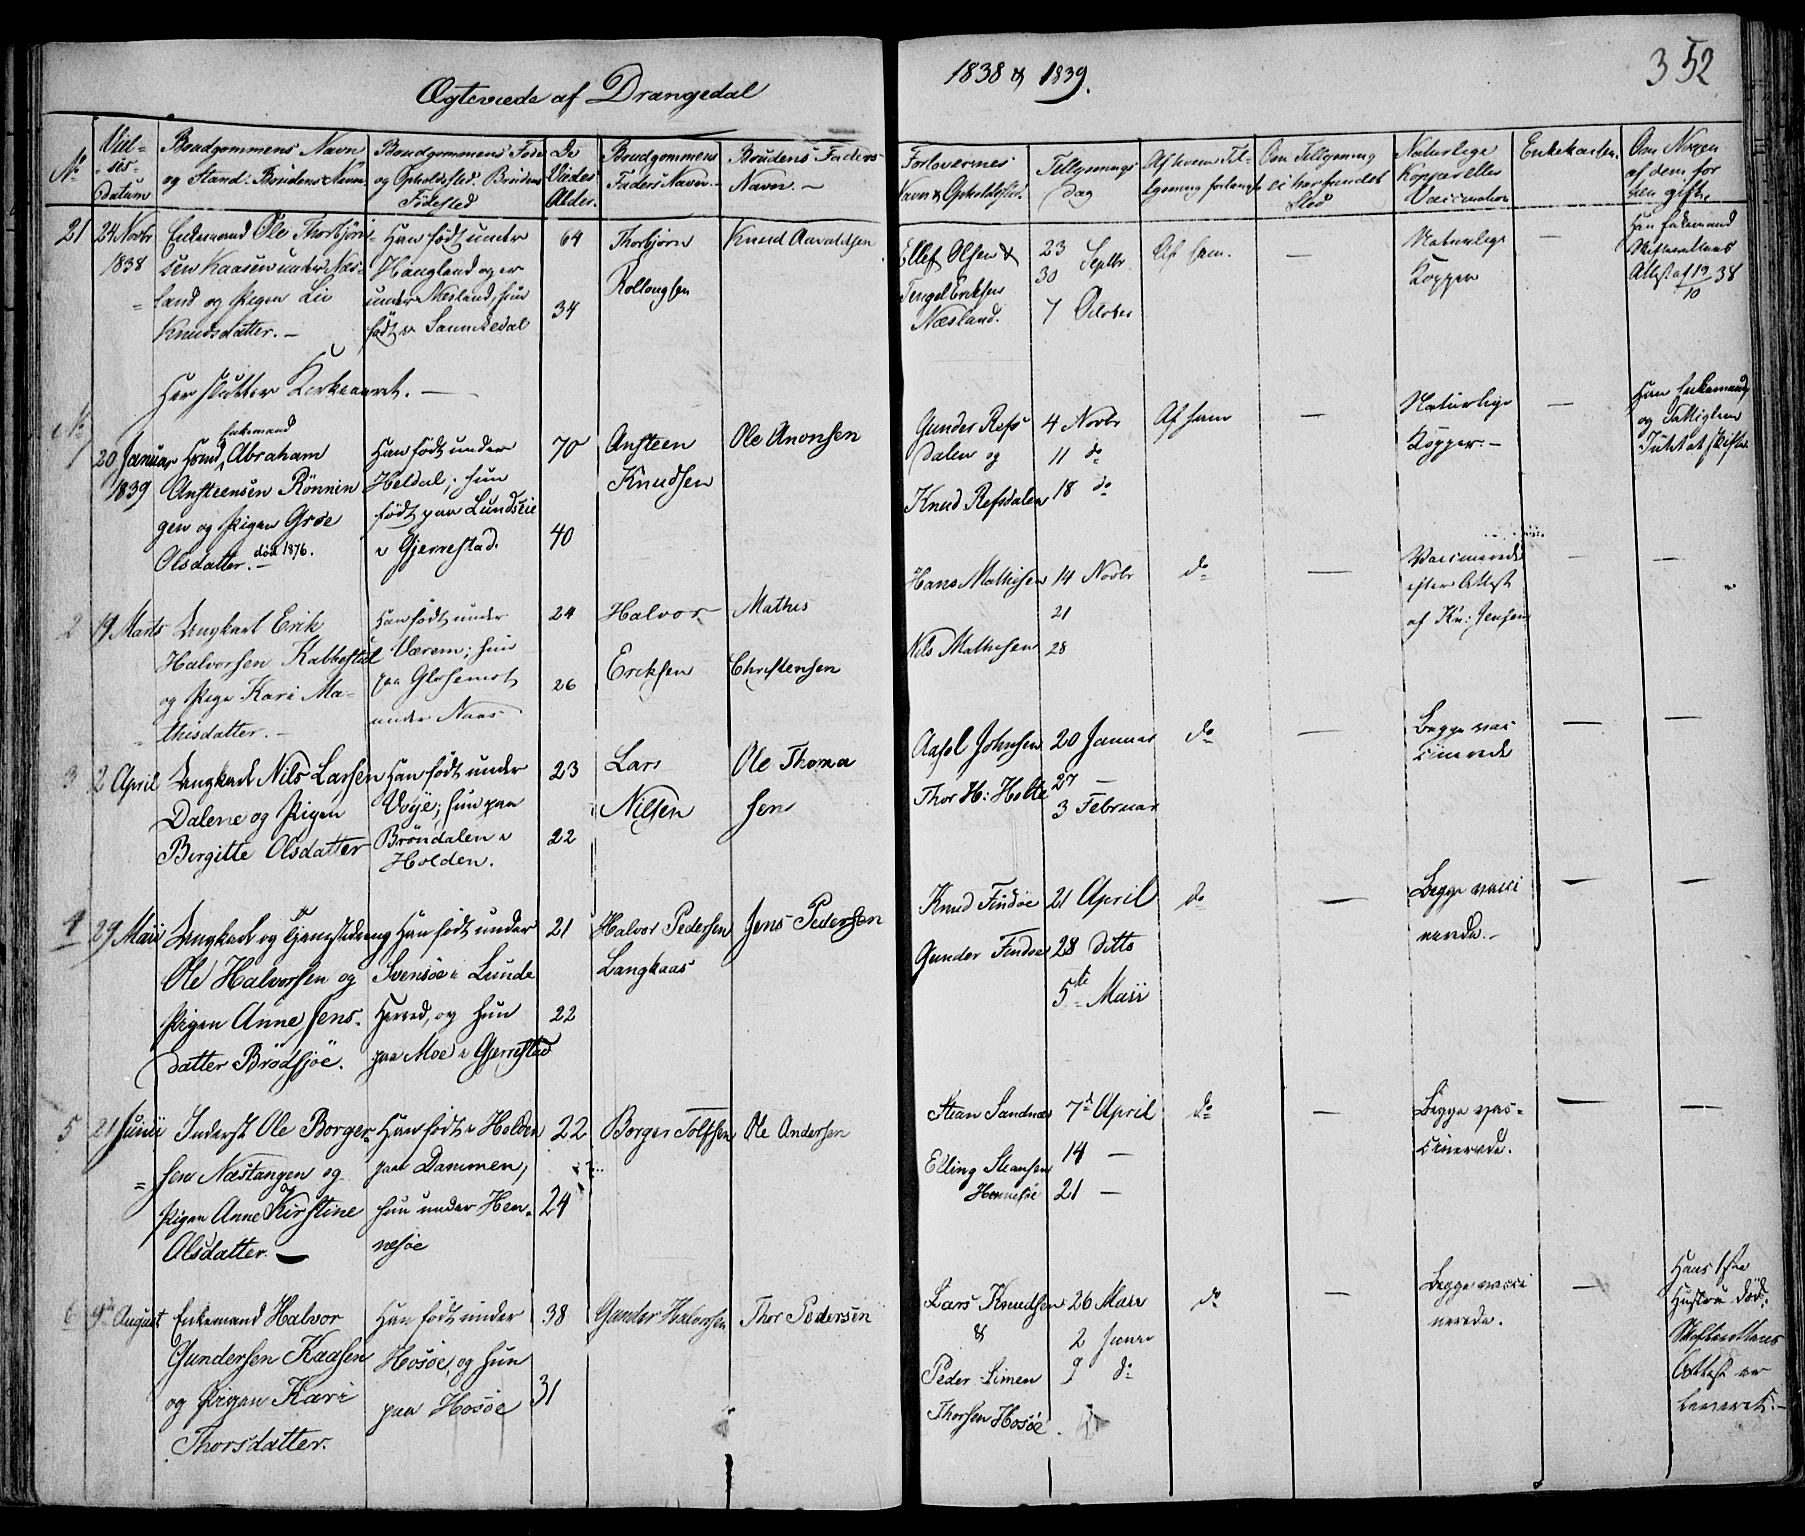 Ægteviede af Drangedal
1838 & 1839.
352
No
Viel-
ses-
Datum
Brudgommens Navn
og Stand. Brudens Navn
Brudgommens Føde
og Opholdssted. Brudens
Fødested
De
Viedes
Alder.
Brudgommens
Faders Navn. –
Brudens Faders
Navn. –
Forlovernes
Navn & Opholdssted.
Tillysnings
Dag
Af hvem Til-
lysning forlangt
Om Tillysning
ei har fundet
Sted
Naturlige
Kopper eller
Vaccination
Enkekasten.
Om Nogen
af dem før
har gift.
21
24 Novbr
1838
Enkemand Ole Thorbjørn-
sen Kaasen under Næs-
land og Pigen Liv
Knudsdatter. –
Han født under
Haugland og er
under Næsland, hun
født i Sannikedal
64
34
Thorbjørn
Knud Aavaldsen
Ellef Olsen &
Tengel Eriksen
Næsland.
23 Septbr
30
7 October
Af ham.
—
Naturlige
Kopper
—
Han Enkemand
Skifterettens
Attest af 12/10 38
Her slutter Kirkeaaret. —
No
1
20 Januar
1839
Enkemand
Abraham
Ansteensen Rønnin
gen og Pigen Groe
Olsdatter. – død 1876.
Han født under
Heldal; hun
født paa Lundseie
i Gjerrestad.
70
40
Ansteen
Knudsen
Ole Anonsen
Gunder Refs
dalen og
Knud Refsdalen
4 Novbr
11 do
18 do
Af ham
—
Naturlige
Kopper. –
—
Han Enkemand
og Fattiglem
2
19 Marts
Ungkarl Erik
Halvorsen Kabbestad
og Pige Kari Ma-
thisdatter. –
Han født under
Værem; hun
paa Glosemot
under Naas
24
26
Halvor
Eriksen
Mathis
Christensen
Hans Mathisen
Nils Mathisen
14 Novbr
21
28
do
—
Vaccinerede
efter Attest
af Kn: Jensen
—
—
3
2 April
Ungkarl Nils Larsen
Dalene og Pigen
Birgitte Olsdatter
Han født under
Voje; hun paa
Brøndalen i
Holden.
23
22
Lars
Nilsen
Ole Thoma
sen
Aasol Johnsen
Thor H: Holte
20 Januar
27 —
3 Februar
do
—
Begge vac
cinerede
—
—
4
29 Maii
Ungkarl og Tjenestedreng
Ole Halvorsen og
Pigen Anne Jens-
datter Brødsjøe.
Han født under
Svensøe i Lunde
Herred, og hun
paa Moe i Gjerrestad
21
22
Halvor Pedersen
Langkaas
Jens Pedersen
Knud Findøe
Gunder Findøe
21 April
28 ditto
5te Maii
do
—
Begge vacci
nerede. –
—
—
5
21 Junii
Inderst Ole Borger-
sen Næstangen og
Pigen Anne Kirstine
Olsdatter. —
Han født i Holden
paa Dammen,
hun under Hen-
nesøe
22
24
Borger Tolfsen
Ole Andersen
Stean Sandnæs
Elling Steansen
Hennesøe
7de April
14 —
21 —
do
—
Begge vac-
cinerede.
—
—
6
9de August
Enkemand Halvor
Gundersen Kaasen
og Pigen Kari
Thorsdatter.
Han født under
Hosøe, og hun
paa Hosøe
38
31
Gunder Halvorsen
Thor Pedersen
Lars Knudsen
&
Peder Simen
Thorsen Hosøe
26 Maii
2 Junii
9 do
do
—
Begge vacci
nerede.
—
Hans 1ste
Hustru død.
Skifterettens
Attest er
leveret. –